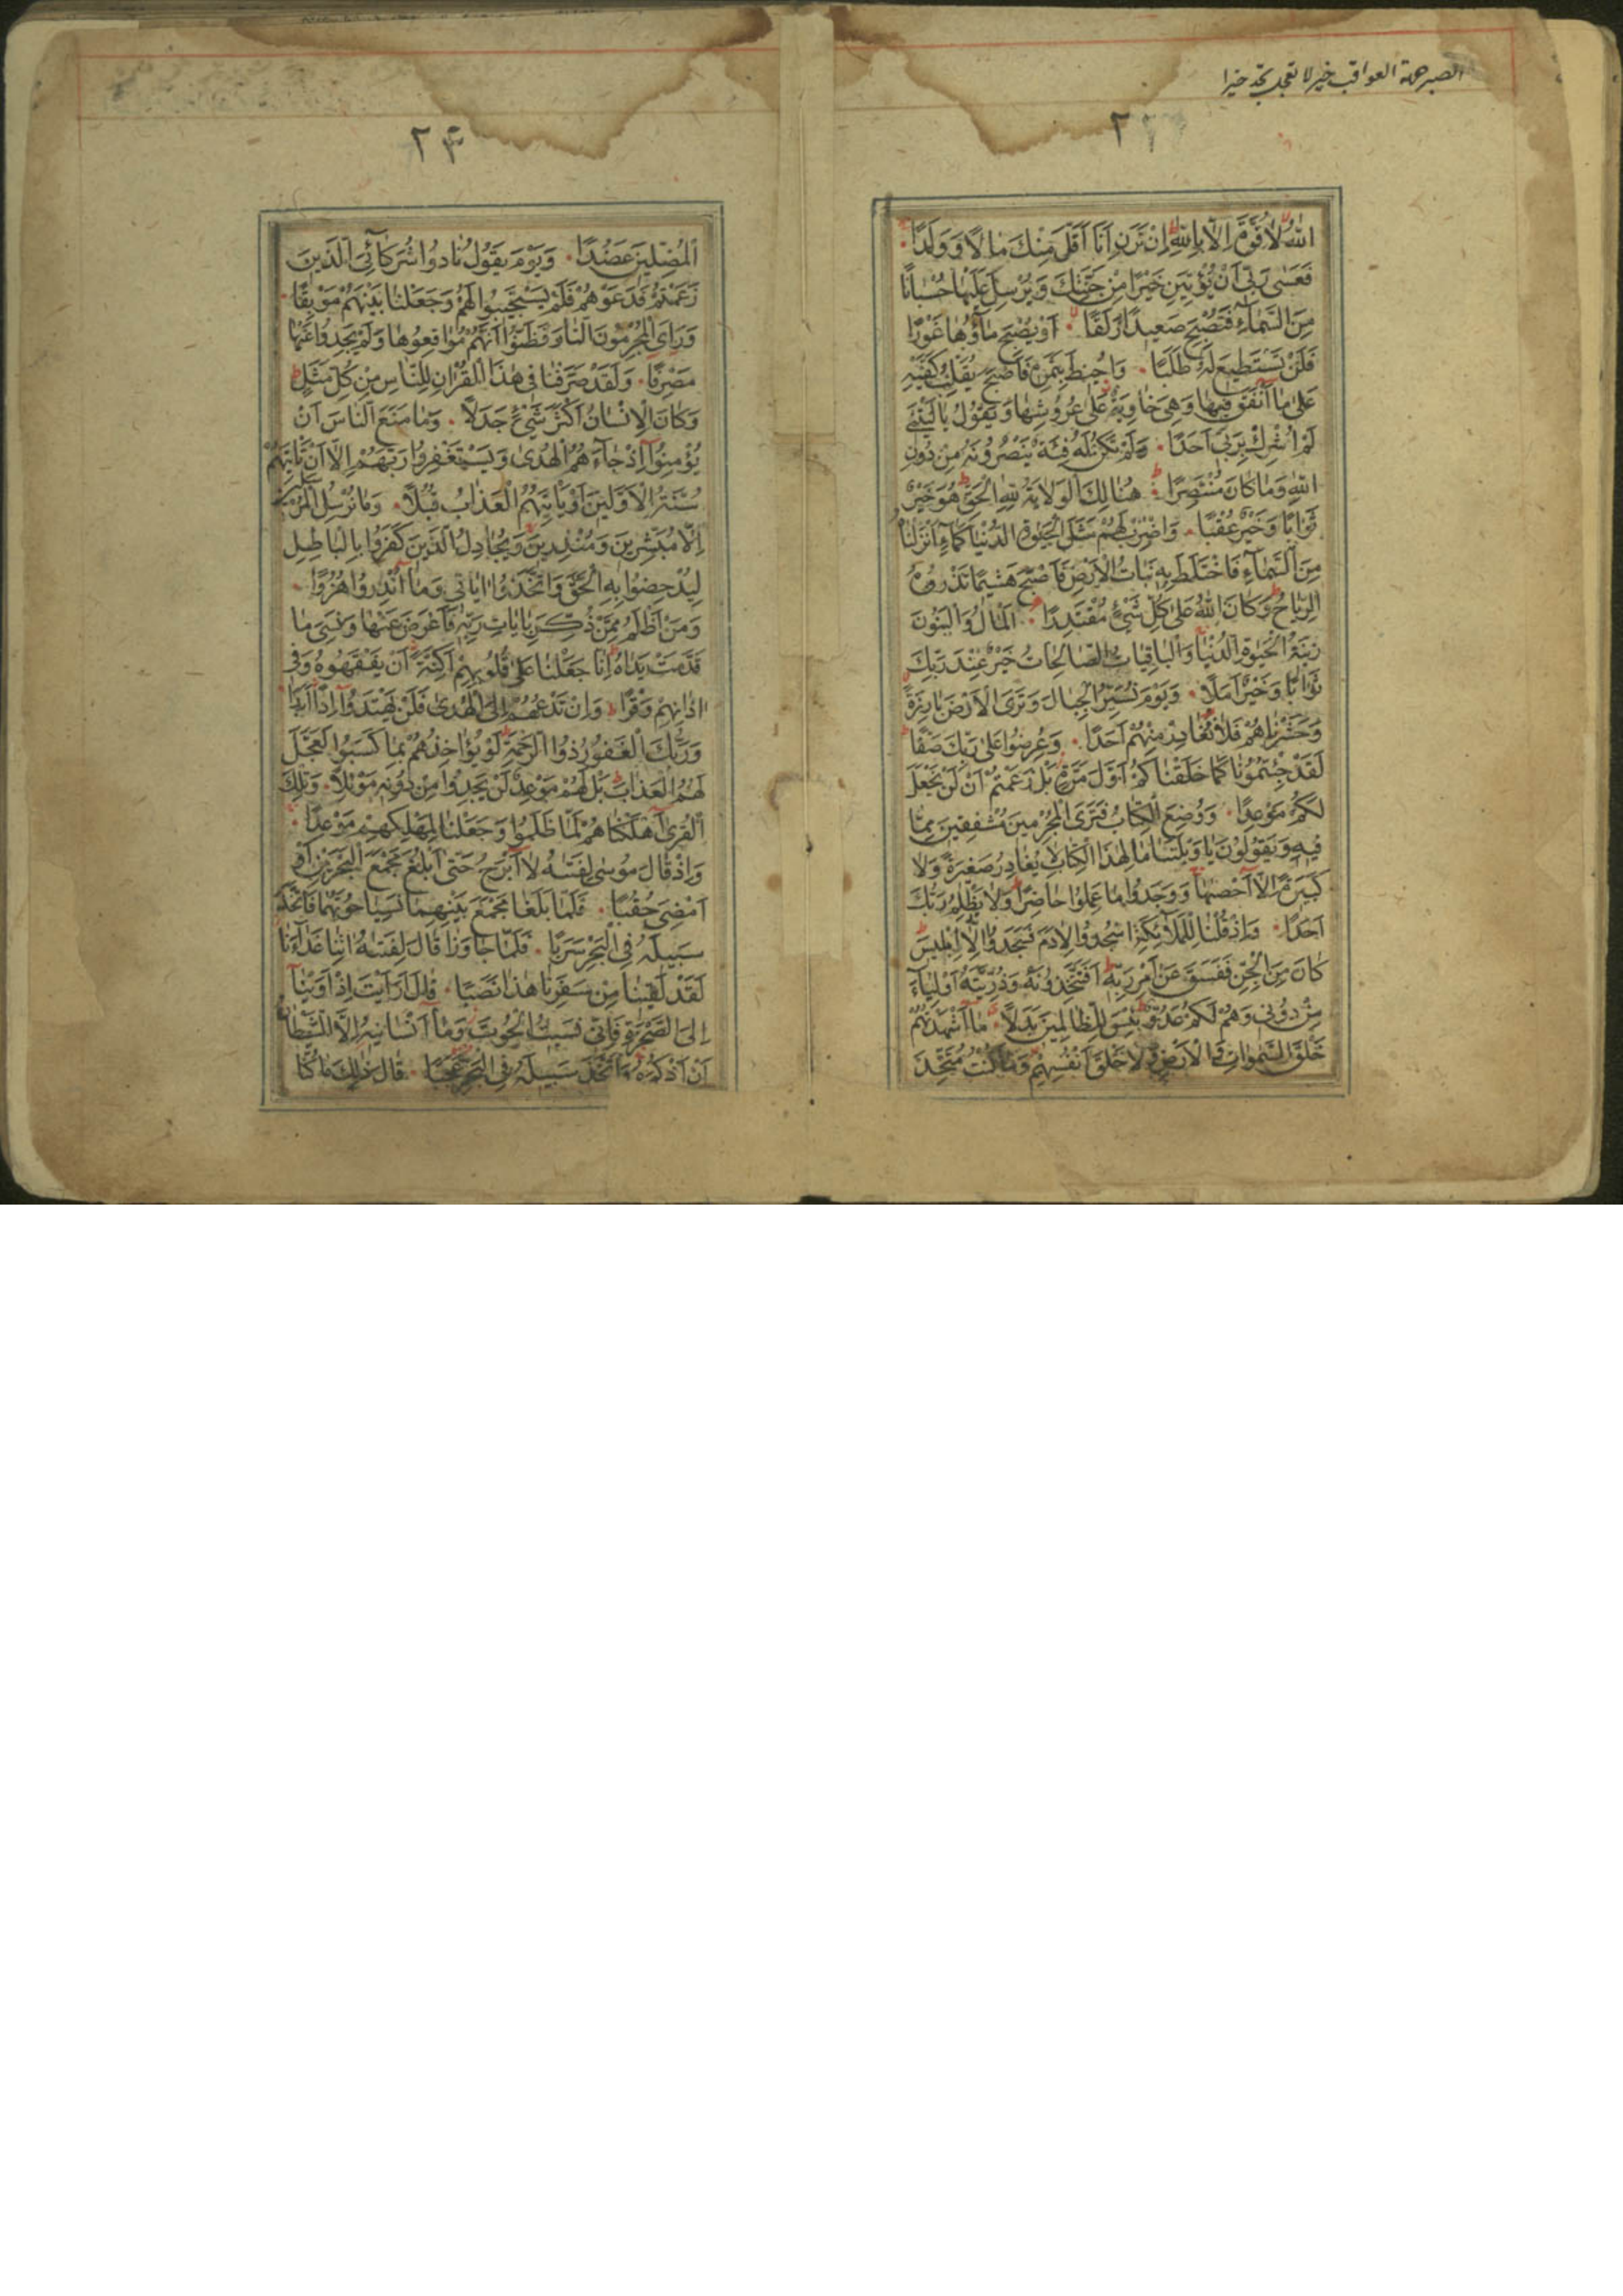 الصبر العواقب خير لا تعجل تجد خيرا
٢٣
اللّٰهُ لَا قُوَّةَ اِلَّا بِاللّٰهِ اِنْ تَرَنِ اَنَا اَقَلَّ مِنْكَ مَالًا وَوَلَدًا
فَعَسٰى رَبّٖى اَنْ يُؤْتِيَنِ خَيْرًا مِنْ جَنَّتِكَ وَيُرْسِلَ عَلَيْهَا حُسْبَانًا
مِنَ السَّمَآءِ فَتُصْبِحَ صَعِيدًا زَلَقًا اَوْ يُصْبِحَ مَآؤُهَا غَوْرًا
فَلَنْ تَسْتَطِيعَ لَهُ طَلَبًا وَاُحِيطَ بِثَمَرِهِ فَاَصْبَحَ يُقَلِّبُ كَفَّيْهِ
عَلٰى مَا اَنْفَقَ فِيهَا وَهِىَ خَاوِيَةٌ عَلٰى عُرُوشِهَا وَيَقُولُ يَالَيْتَنِى
لَمْ اُشْرِكْ بِرَبّٖى اَحَدًا وَلَمْ تَكُنْ لَهُ فِئَةٌ يَنْصُرُونَهُ مِنْ دُونِ
اللّٰهِ وَمَا كَانَ مُنْتَصِرًا هُنَالِكَ الْوَلَايَةُ لِلّٰهِ الْحَقِّ هُوَ خَيْرٌ
ثَوَابًا وَخَيْرٌ عُقْبًا وَاضْرِبْ لَهُمْ مَثَلَ الْحَيٰوةِ الدُّنْيَا كَمَآءٍ اَنْزَلْنَاهُ
مِنَ السَّمَآءِ فَاخْتَلَطَ بِهِ نَبَاتُ الْاَرْضِ فَاَصْبَحَ هَشِيمًا تَذْرُوهُ
الرِّيَاحُ وَكَانَ اللّٰهُ عَلٰى كُلِّ شَىْءٍ مُقْتَدِرًا اَلْمَالُ وَالْبَنُونَ
زِينَةُ الْحَيٰوةِ الدُّنْيَا وَالْبَاقِيَاتُ الصَّالِحَاتُ خَيْرٌ عِنْدَ رَبِّكَ
ثَوَابًا وَخَيْرٌ اَمَلًا وَيَوْمَ نُسَيِّرُ الْجِبَالَ وَتَرَى الْاَرْضَ بَارِزَةً
وَحَشَرْنَاهُمْ فَلَمْ نُغَادِرْ مِنْهُمْ اَحَدًا وَعُرِضُوا عَلٰى رَبِّكَ صَفًّا
لَقَدْ جِئْتُمُونَا كَمَا خَلَقْنَاكُمْ اَوَّلَ مَرَّةٍ بَلْ زَعَمْتُمْ اَنْ لَنْ نَجْعَلَ
لَكُمْ مَوْعِدًا وَوُضِعَ الْكِتَابُ فَتَرَى الْمُجْرِمِينَ مُشْفِقِينَ مِمَّا
فِيهِ وَيَقُولُونَ يَا وَيْلَتَنَا مَالِ هٰذَا الْكِتَابِ لَا يُغَادِرُ صَغِيرَةً وَلَا
كَبِيرَةً اِلَّا اَحْصٰيهَا وَوَجَدُوا مَا عَمِلُوا حَاضِرًا وَلَا يَظْلِمُ رَبُّكَ
اَحَدًا وَاِذْ قُلْنَا لِلْمَلٰٓئِكَةِ اسْجُدُوا لِاٰدَمَ فَسَجَدُوا اِلَّا اِبْلِيسَ
كَانَ مِنَ الْجِنِّ فَفَسَقَ عَنْ اَمْرِ رَبِّهِ اَفَتَتَّخِذُونَهُ وَذُرِّيَّتَهُ اَوْلِيَآءَ
مِنْ دُونِى وَهُمْ لَكُمْ عَدُوٌّ بِئْسَ لِلظَّالِمِينَ بَدَلًا مَا اَشْهَدْتُهُمْ
خَلْقَ السَّمٰوَاتِ وَالْاَرْضِ وَلَا خَلْقَ اَنْفُسِهِمْ وَمَا كُنْتُ مُتَّخِذَ
٢٤
الْمُضِلِّينَ عَضُدًا وَيَوْمَ يَقُولُ نَادُوا شُرَكَآئِىَ الَّذِينَ
زَعَمْتُمْ فَدَعَوْهُمْ فَلَمْ يَسْتَجِيبُوا لَهُمْ وَجَعَلْنَا بَيْنَهُمْ مَوْبِقًا
وَرَاَى الْمُجْرِمُونَ النَّارَ فَظَنُّوا اَنَّهُمْ مُوَاقِعُوهَا وَلَمْ يَجِدُوا عَنْهَا
مَصْرِفًا وَلَقَدْ صَرَّفْنَا فِى هٰذَا الْقُرْاٰنِ لِلنَّاسِ مِنْ كُلِّ مَثَلٍ
وَكَانَ الْاِنْسَانُ اَكْثَرَ شَىْءٍ جَدَلًا وَمَا مَنَعَ النَّاسَ اَنْ
يُؤْمِنُوا اِذْ جَآءَهُمُ الْهُدٰى وَيَسْتَغْفِرُوا رَبَّهُمْ اِلَّا اَنْ تَاْتِيَهُمْ
سُنَّةُ الْاَوَّلِينَ اَوْ يَاْتِيَهُمُ الْعَذَابُ قُبُلًا وَمَا نُرْسِلُ الْمُرْسَلِينَ
اِلَّا مُبَشِّرِينَ وَمُنْذِرِينَ وَيُجَادِلُ الَّذِينَ كَفَرُوا بِالْبَاطِلِ
لِيُدْحِضُوا بِهِ الْحَقَّ وَاتَّخَذُوا اٰيَاتِى وَمَا اُنْذِرُوا هُزُوًا
وَمَنْ اَظْلَمُ مِمَّنْ ذُكِّرَ بِاٰيَاتِ رَبِّهِ فَاَعْرَضَ عَنْهَا وَنَسِىَ مَا
قَدَّمَتْ يَدَاهُ اِنَّا جَعَلْنَا عَلٰى قُلُوبِهِمْ اَكِنَّةً اَنْ يَفْقَهُوهُ وَفِى
اٰذَانِهِمْ وَقْرًا وَاِنْ تَدْعُهُمْ اِلَى الْهُدٰى فَلَنْ يَهْتَدُوا اِذًا اَبَدًا
وَرَبُّكَ الْغَفُورُ ذُوا الرَّحْمَةِ لَوْ يُؤَاخِذُهُمْ بِمَا كَسَبُوا لَعَجَّلَ
لَهُمُ الْعَذَابَ بَلْ لَهُمْ مَوْعِدٌ لَنْ يَجِدُوا مِنْ دُونِهِ مَوْئِلًا وَتِلْكَ
الْقُرٰى اَهْلَكْنَاهُمْ لَمَّا ظَلَمُوا وَجَعَلْنَا لِمَهْلِكِهِمْ مَوْعِدًا
وَاِذْ قَالَ مُوسٰى لِفَتٰيهُ لَا اَبْرَحُ حَتّٰى اَبْلُغَ مَجْمَعَ الْبَحْرَيْنِ اَوْ
اَمْضِىَ حُقُبًا فَلَمَّا بَلَغَا مَجْمَعَ بَيْنِهِمَا نَسِيَا حُوتَهُمَا فَاتَّخَذَ
سَبِيلَهُ فِى الْبَحْرِ سَرَبًا فَلَمَّا جَاوَزَا قَالَ لِفَتٰيهُ اٰتِنَا غَدَآءَنَا
لَقَدْ لَقِينَا مِنْ سَفَرِنَا هٰذَا نَصَبًا قَالَ اَرَاَيْتَ اِذْ اَوَيْنَا
اِلَى الصَّخْرَةِ فَاِنِّى نَسِيتُ الْحُوتَ وَمَا اَنْسَانِيهُ اِلَّا الشَّيْطَانُ
اَنْ اَذْكُرَهُ وَاتَّخَذَ سَبِيلَهُ فِى الْبَحْرِ عَجَبًا قَالَ ذٰلِكَ مَا كُنَّا